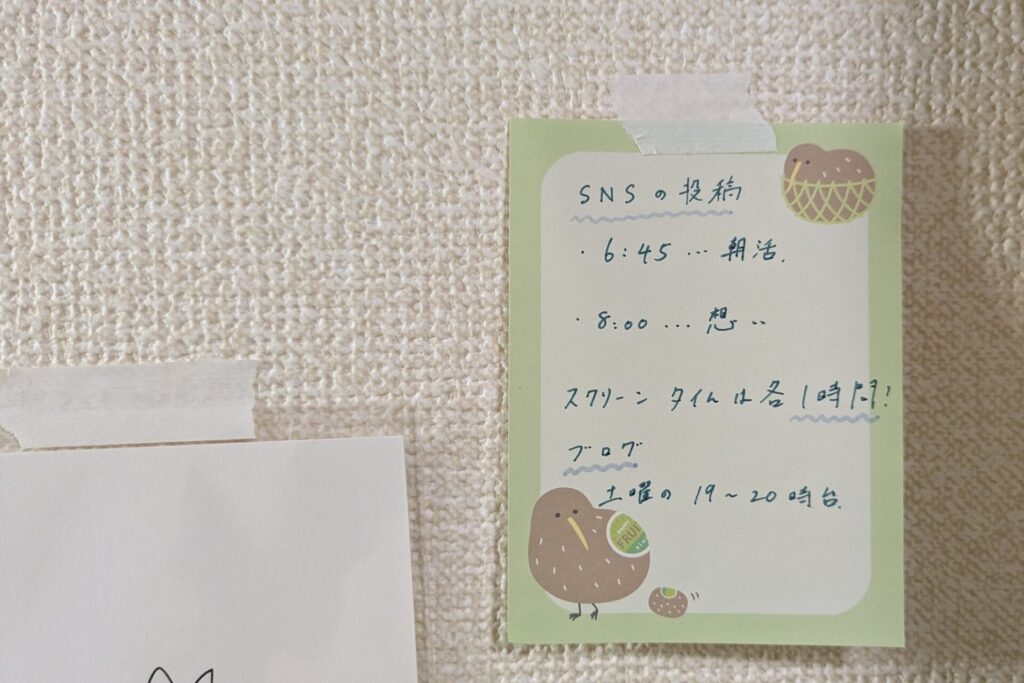 SNSの投稿
・6:45…朝活.
・8:00…想‥
スクリーンタイムは各1時間!
ブログ
土曜の19～20時台.
FRUI